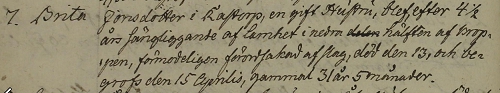 7. Brita Jönsdotter i Kastorp, en gift Hustru, blef efter 4 1/2
års sängliggande af lamhet i nedra delen hälften af krop-
pen, förmodeligen förordsakad af slag, död den 13, och be-
grofs den 15 Aprilis, gammal 31 år 5 månader.